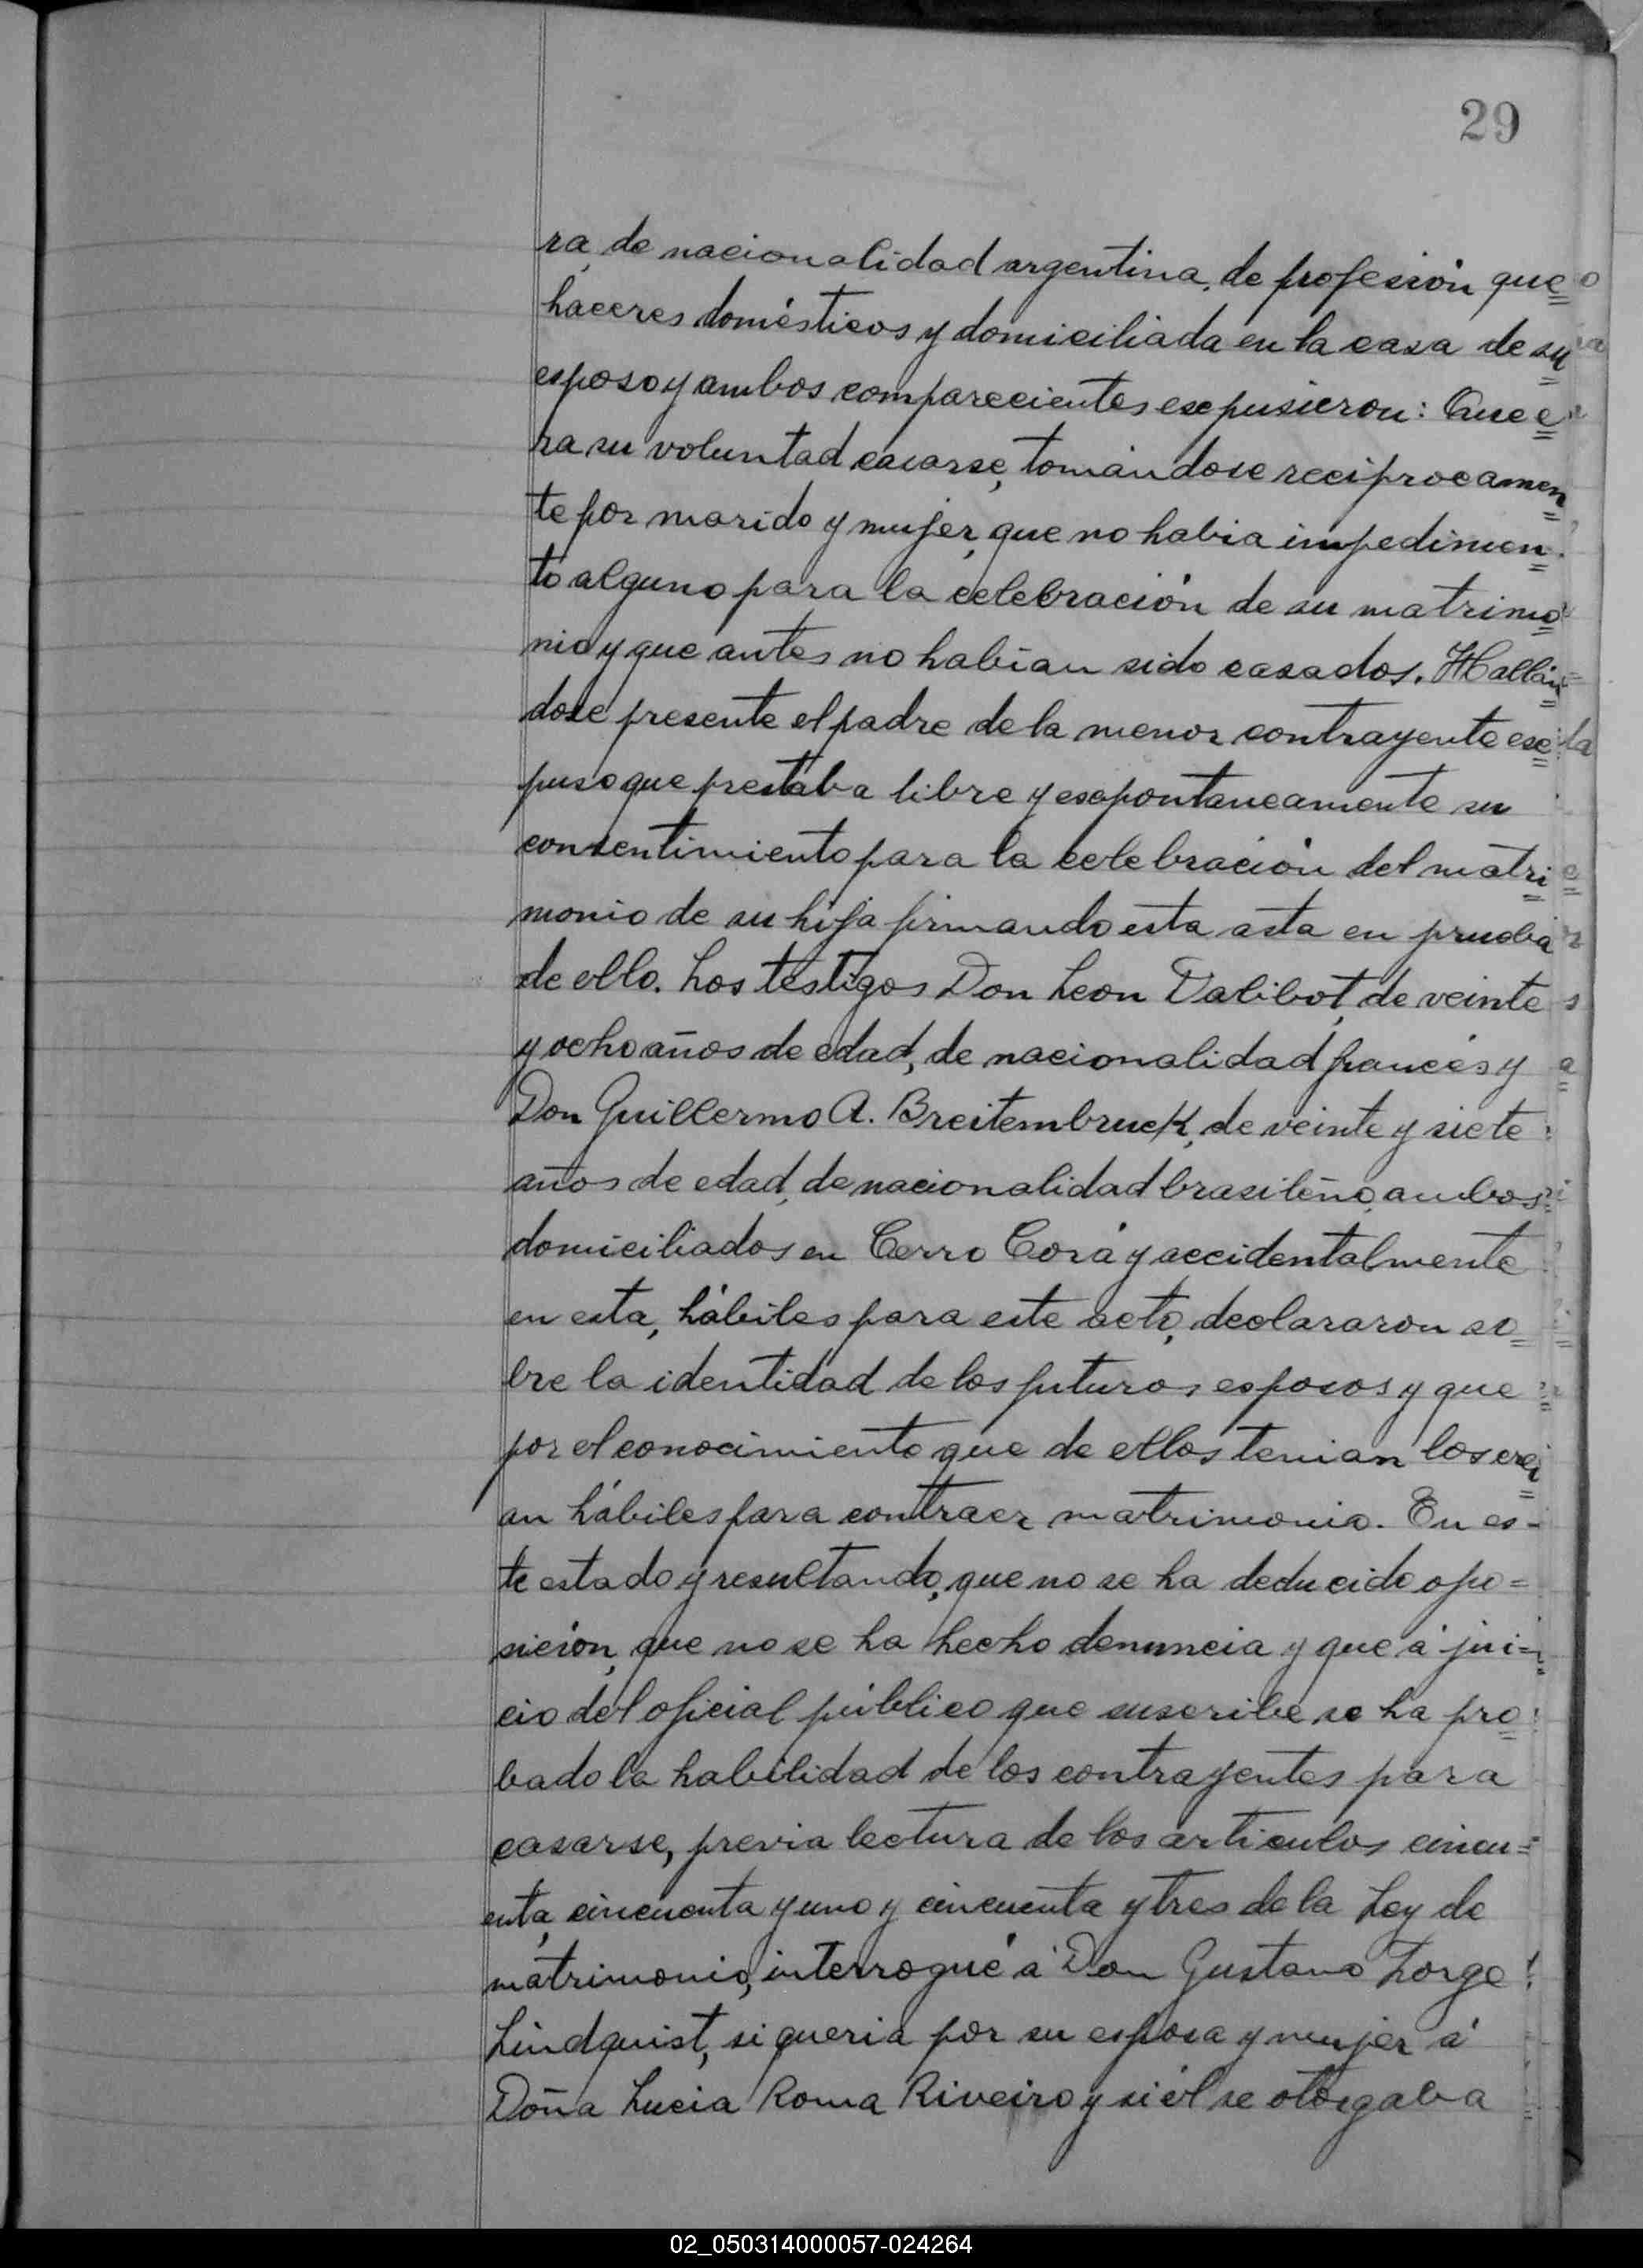 29
ra, de nacionalidad argentina, de profesión que=
haceres domésticos y domiciliada en la casa de su=
esposo y ambos comparecientes expusieron: Que e=
ra su voluntad casarse, tomándose recíprocamen=
te por marido y mujer, que no habia impedimen=
to alguno para la celebración de su matrimo=
nio y que antes no habían sido casados. Hallán=
dose presente el padre de la menor contrayente ex=
puso que prestaba libre y expontaneamente su
consentimiento para la celebración del matri=
monio de su hija firmando esta acta en prueba
de ello. Los testigos Don Leon Dalibot, de veinte
y ocho años de edad, de nacionalidad francés y
Don Guillermo A. Breitembruck, de veinte y siete
años de edad, de nacionalidad brasileño, ambos
domiciliados en Cerro Corá y accidentalmente
en esta, hábiles para este acto, declararon so=
bre la identidad de los futuros esposos y que
por el conocimiento que de ellos tenian los crei=
an hábiles para contraer matrimonio. En es-
te estado y resultando, que no se ha deducido opo=
sición, que no se ha hecho denuncia y que á jui=
cio del oficial público que suscribe se ha pro=
bado la habilidad de los contrayentes para
casarse, previa lectura de los articulos cincu=
enta, cincuenta y uno y cincuenta y tres de la Ley de
matrimonio, interrogué á Don Gustavo Lorge
Lindquist, si queria por su esposa y mujer á
Doña Lucia Roma Riveiro y si él se otorgaba
02_050314000057-024264